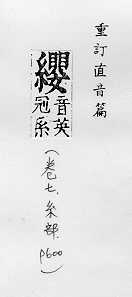 重訂直音篇
纓
音英
冠系
（卷七．糸部．P600）